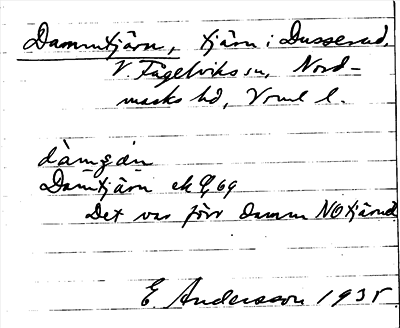 Dammtjärn, tjärn i Dusserud,
V. Fågelviks sn, Nord-
marks hd, Vrml l.
dàmɟän
Damtjärn ek 69
Det var förr damm NO tjärnet
E. Andersson 1935.